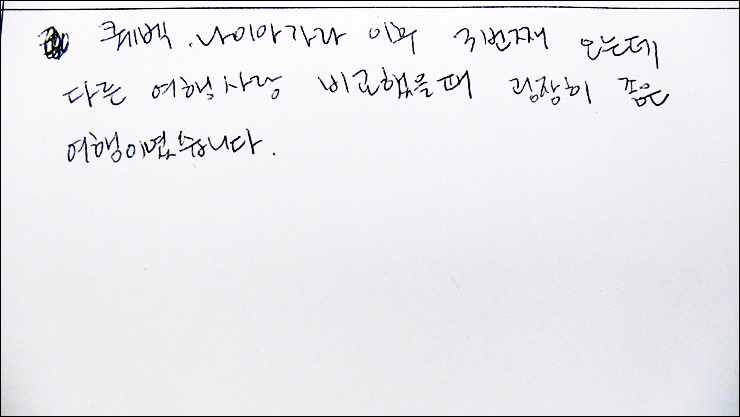 퀘벡.나이아가라 이부 3번째 오는데
다른 여행사랑 비교했을때 굉장히 좋은
여행이였습니다.